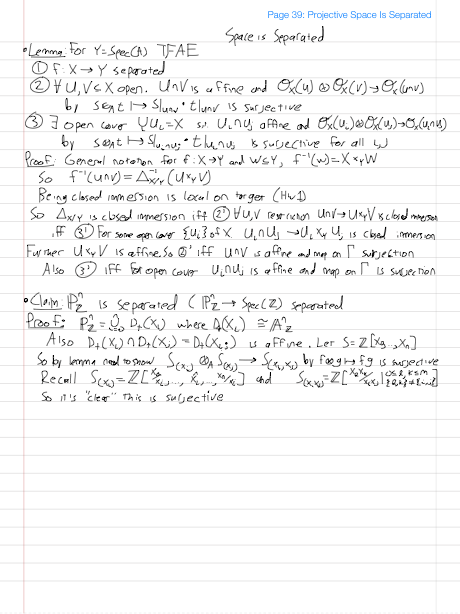 Page 39: Projective Space Is Separated
Space is Separated
• Lemma: For Y=Spec(A) TFAE
① f: X → Y separated
② ∀ U,V ⊂ X open. U∩V is affine and O_X(U) ⊗ O_X(V) → O_X(U∩V)
by s⊗t ↦ s|_{U∩V} · t|_{U∩V} is surjective
③ ∃ open cover ∪U_i = X s.t. U_i∩U_j affine and O_X(U_i)⊗O_X(U_j)→O_X(U_i∩U_j)
by s⊗t ↦ s|_{U_i∩U_j} · t|_{U_i∩U_j} is surjective for all i,j
Proof: General notation for f: X→Y and W⊆Y, f⁻¹(W) = X ×_Y W
So f⁻¹(U∩V) = Δ⁻¹_{X/Y}(U×_Y V)
Being closed immersion is local on target (HW1)
So Δ_{X/Y} is closed immersion iff ②' ∀ U,V restriction U∩V → U×_Y V is closed immersion
iff ③' For some open cover {U_i} of X. U_i∩U_j → U_i ×_Y U_j is closed immersion
Further U×_Y V is affine. So ②' iff U∩V is affine and map on Γ surjection
Also ③' iff for open cover U_i∩U_j is affine and map on Γ is surjection
• Claim: ℙⁿ_ℤ is separated (ℙⁿ_ℤ → Spec(ℤ) separated
Proof: ℙⁿ_ℤ = ∪ D₊(X_i) where D₊(X_i) ≅ 𝔸ⁿ_ℤ
Also D₊(X_i) ∩ D₊(X_j) = D₊(X_iX_j) is affine. Let S=ℤ[X_0,...,X_n]
So by lemma need to show S_(X_i) ⊗_A S_(X_j) → S_(X_i,X_j) by f⊗g ↦ fg is surjective
Recall S_(X_i) = ℤ[X_0/X_i, ..., X̂_i, ..., X_n/X_i] and
So it's "clear" this is surjective